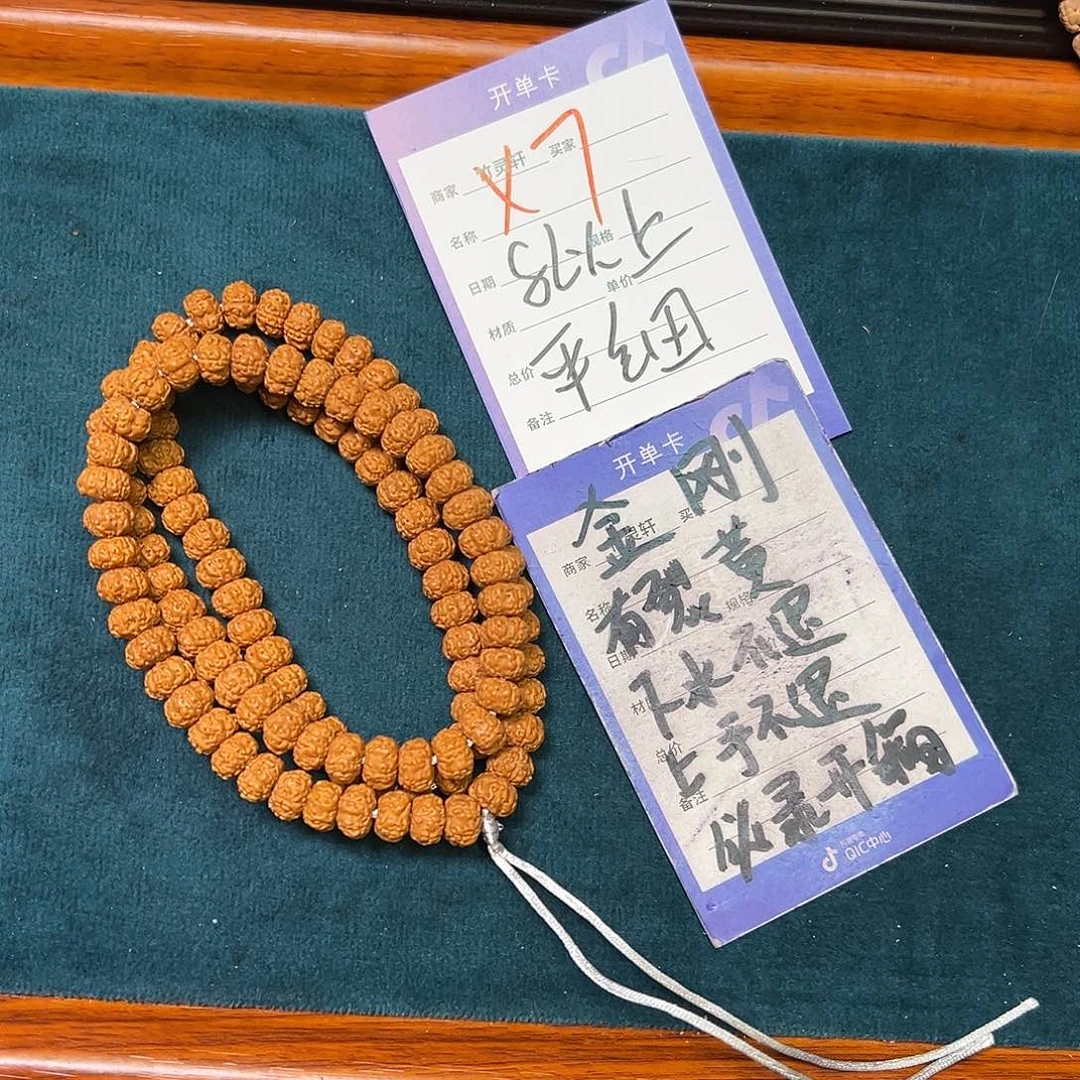 开单卡
X7
商家 竹灵轩 买家
名称
8以上
规格
日期
单价
材质
平细
总价
备注
开单卡
金刚
商家 灵轩 买
有裂黄
名称
规格
日期
下水不退
材
上手不退
总价
备注
必录开箱
QIC中心